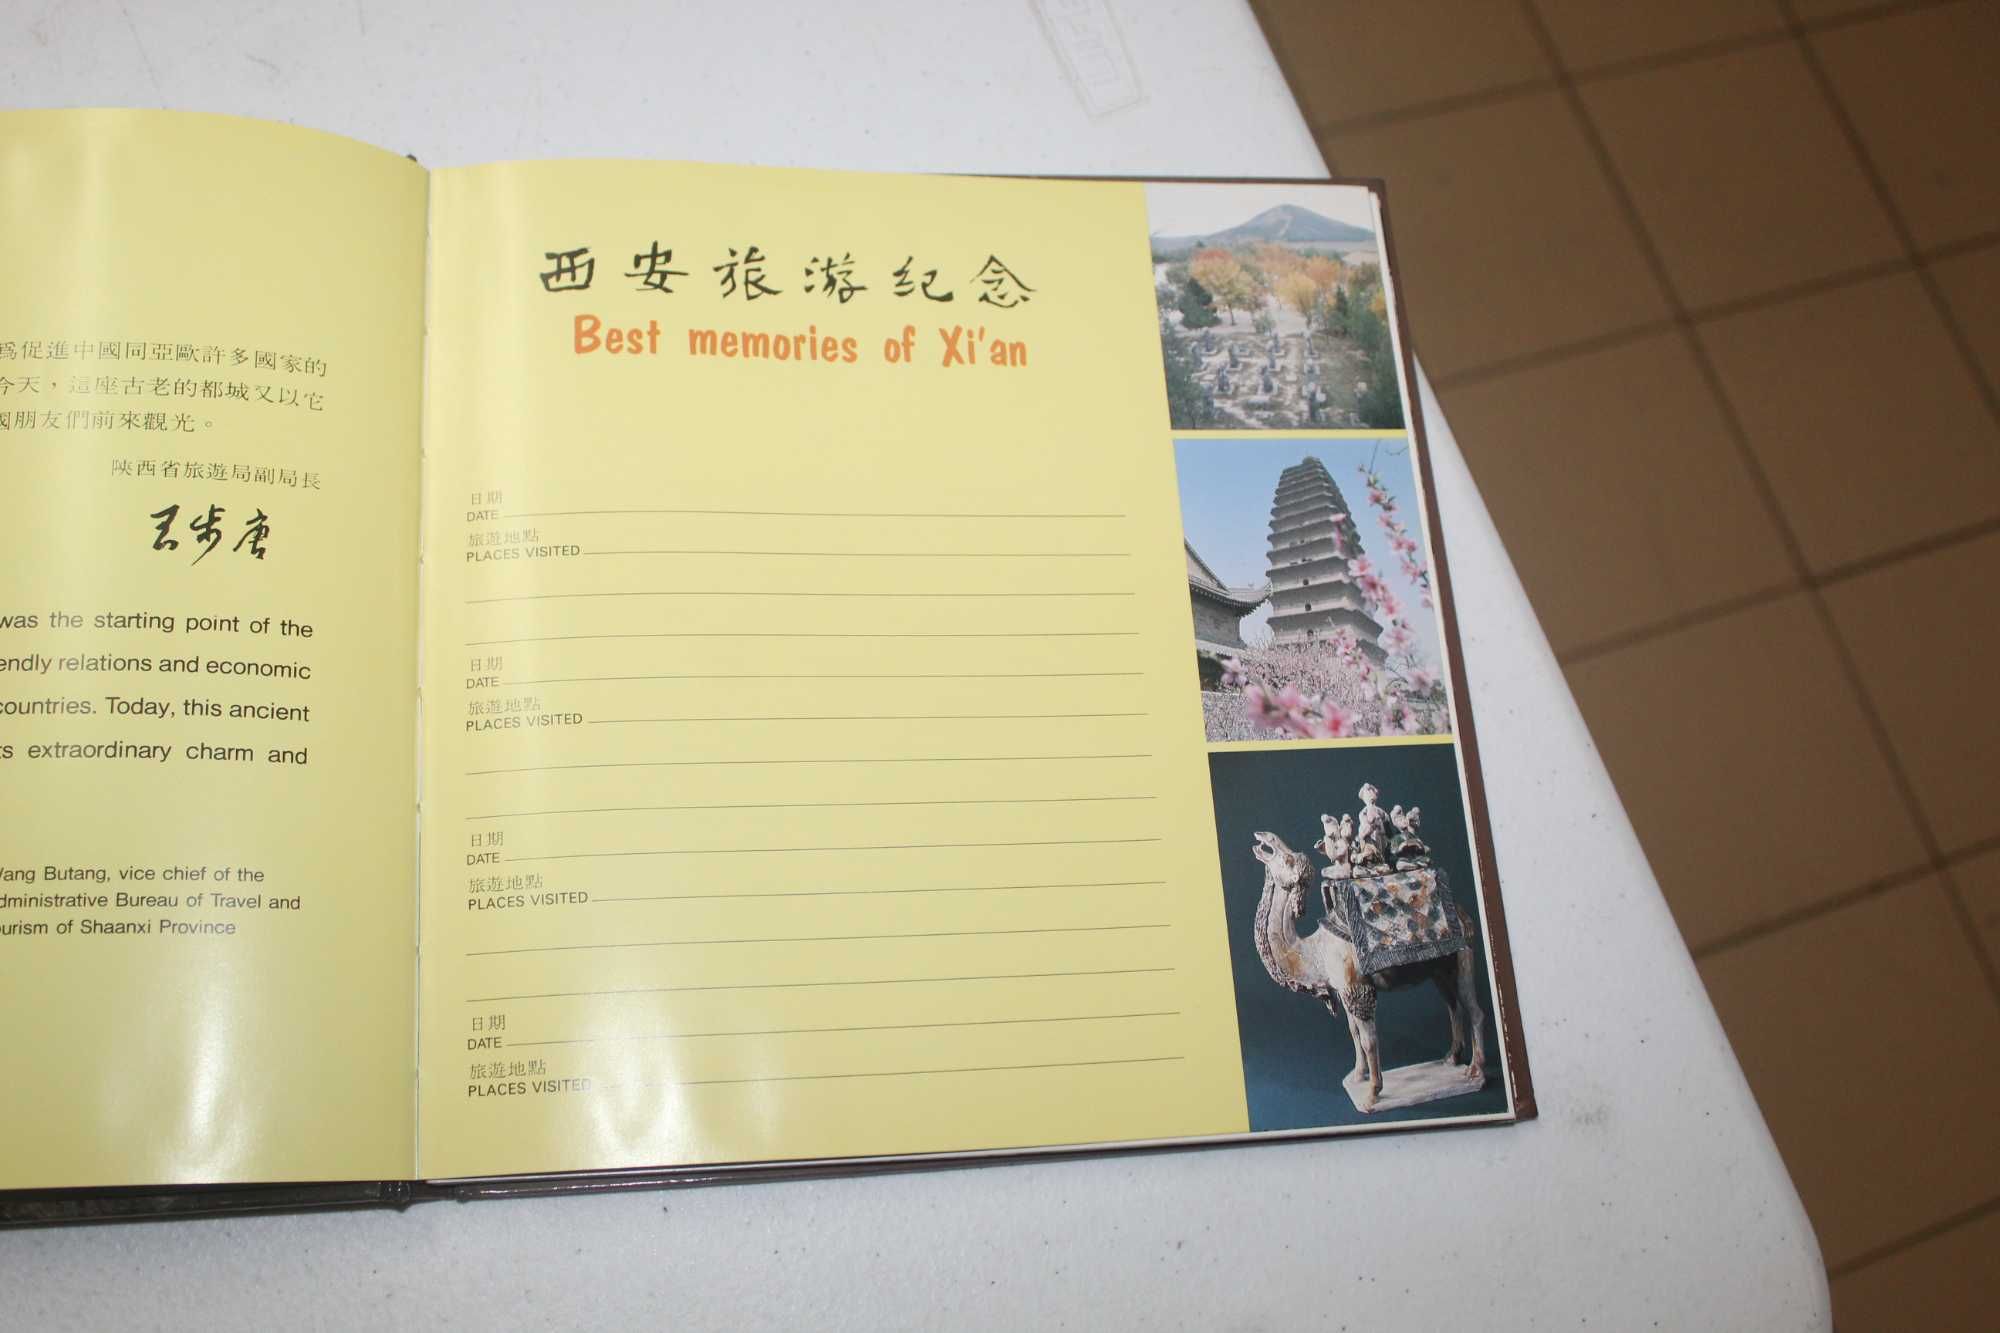 爲促進中國同亞歐許多國家的
今天，這座古老的都城又以它
國朋友們前來觀光。
陝西省旅遊局副局長
王步唐
was the starting point of the
endly relations and economic
countries. Today, this ancient
ts extraordinary charm and
Wang Butang, vice chief of the
dministrative Bureau of Travel and
ourism of Shaanxi Province
西安旅游纪念
Best memories of Xi'an
日期
DATE
旅遊地點
PLACES VISITED
日期
DATE
旅遊地點
PLACES VISITED
日期
DATE
旅遊地點
PLACES VISITED
日期
DATE
旅遊地點
PLACES VISITED